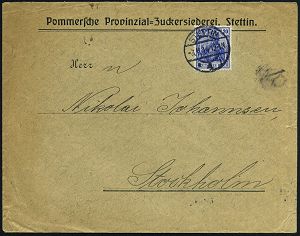 Pommersche Provinzial=Zuckersiederei, Stettin.
Herrn
Nikolai Johannsen,
Stockholm
STETTIN